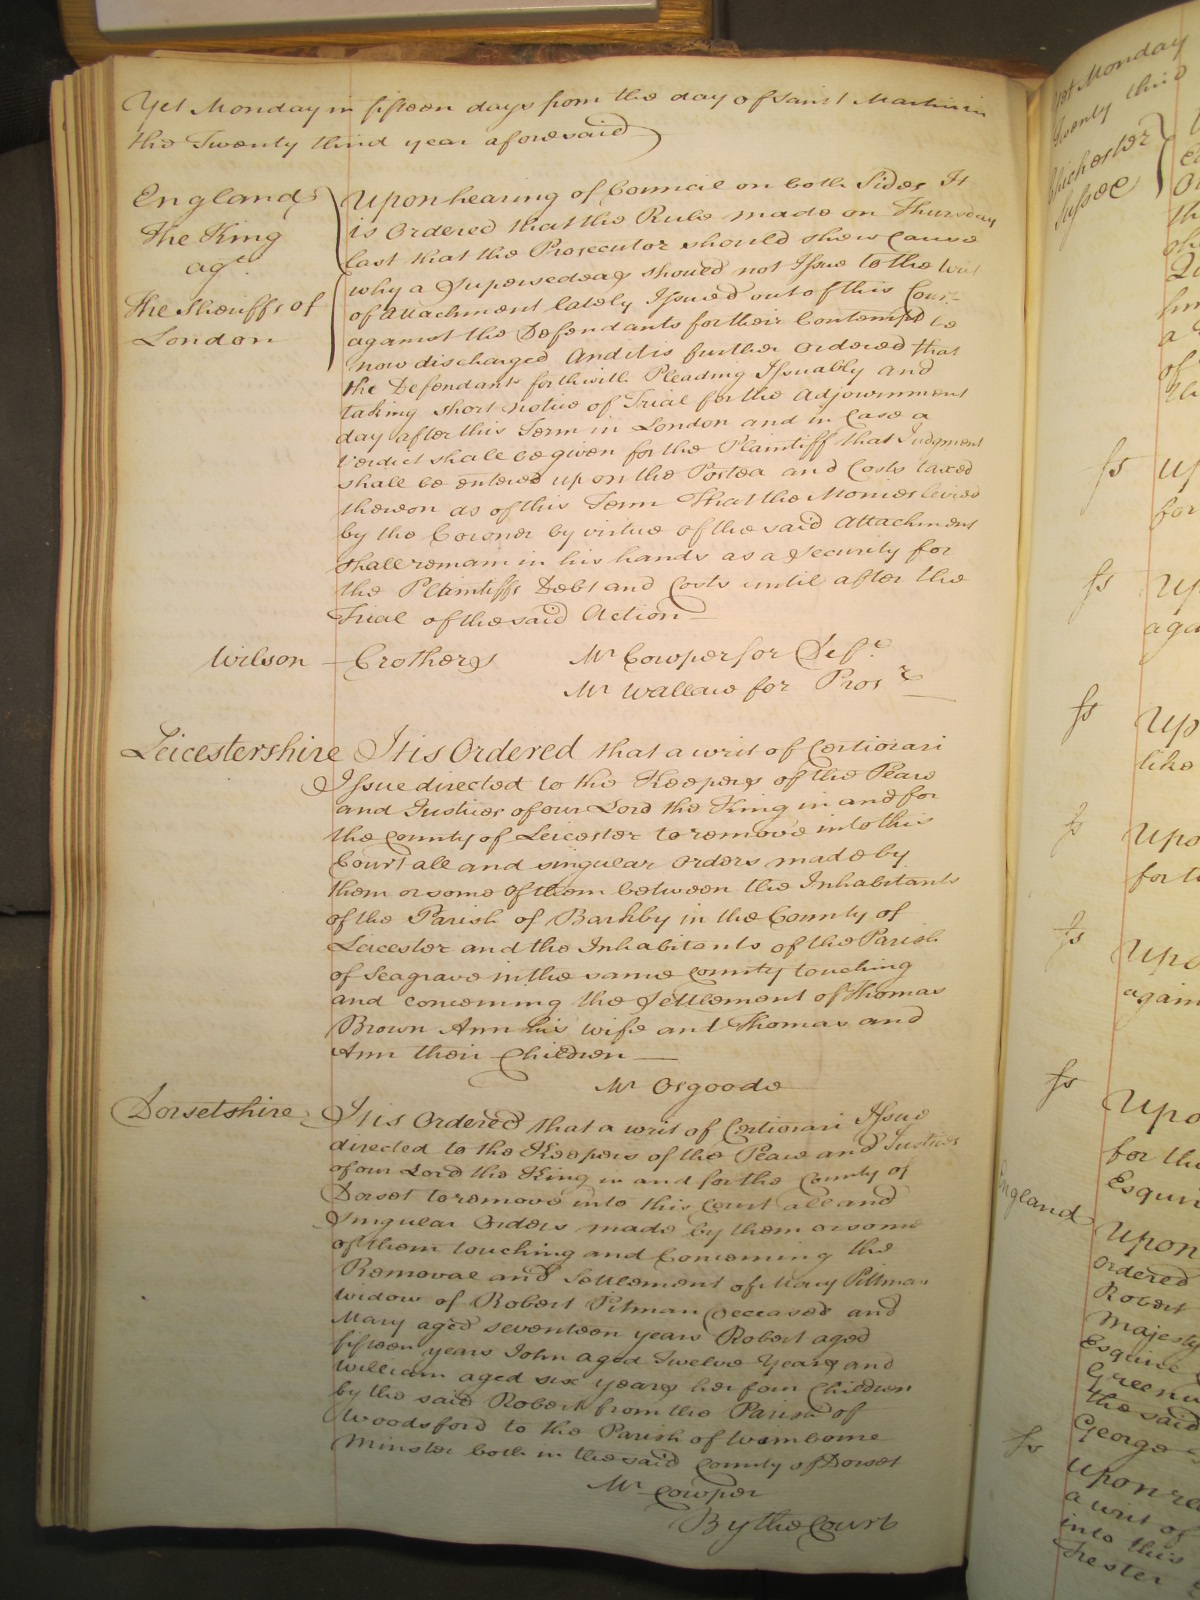 Yet Monday in fifteen days from the day of Saint Martin in
the Twenty third year aforesaid
England
The King
agt.
the Sheriffs of
London
Upon hearing of Council on both Sides It
is Ordered that the Rule made on Thursday
last that the Prosecutor should shew Cause
why a Supersedeas should not Issue to the writ
of Attachment lately Issued out of this Court
against the Defendants for their Contempt be
now discharged And it is further Ordered that
the Defendants forthwith Pleading Issuably and
taking short notice of Trial for the Adjournment
day after this Term in London and in Case a
Verdict shall be given for the Plaintiff that Judgment
shall be entered up on the Postea and Costs taxed
thereon as of this Term That the Monies levied
by the Coroner by virtue of the said Attachment
shall remain in his hands as a Security for
the Plaintiffs Debt and Costs until after the
Trial of the said Action
Wilson - Crothers
Mr Cowper for Def.t
Mr Wallace for Prosr
Leicestershire It is Ordered that a writ of Certiorari
Issue directed to the Keepers of the Peace
and Justices of our Lord the King in and for
the County of Leicester to remove into this
Court all and singular Orders made by
them or some of them between the Inhabitants
of the Parish of Barkby in the County of
Leicester and the Inhabitants of the Parish
of Seagrave in the same County touching
and concerning the Settlement of Thomas
Brown Ann his wife and Thomas and
Ann their Children
Mr Osgoode
Dorsetshire It is Ordered that a writ of Certiorari Issue
directed to the Keepers of the Peace and Justices
of our Lord the King in and for the County of
Dorset to remove into this Court all and
Singular Orders made by them or some
of them touching and Concerning the
Removal and Settlement of Mary Pittman
widow of Robert Pitman deceased and
Mary aged seventeen years Robert aged
fifteen years John aged Twelve Years and
William aged six years her four Children
by the said Robert from the Parish of
Woodsford to the Parish of Wemborne
Minster both in the said County of Dorset
Mr Cowper
By the Court
Yet Monday
Twenty third
Chichester
Sussex
England
Upon
for
Upo
like
for the
Esqui
Upon
Ordered
Robert
Majesty
Esquire
the said
George
Upon re
a writ of
into this